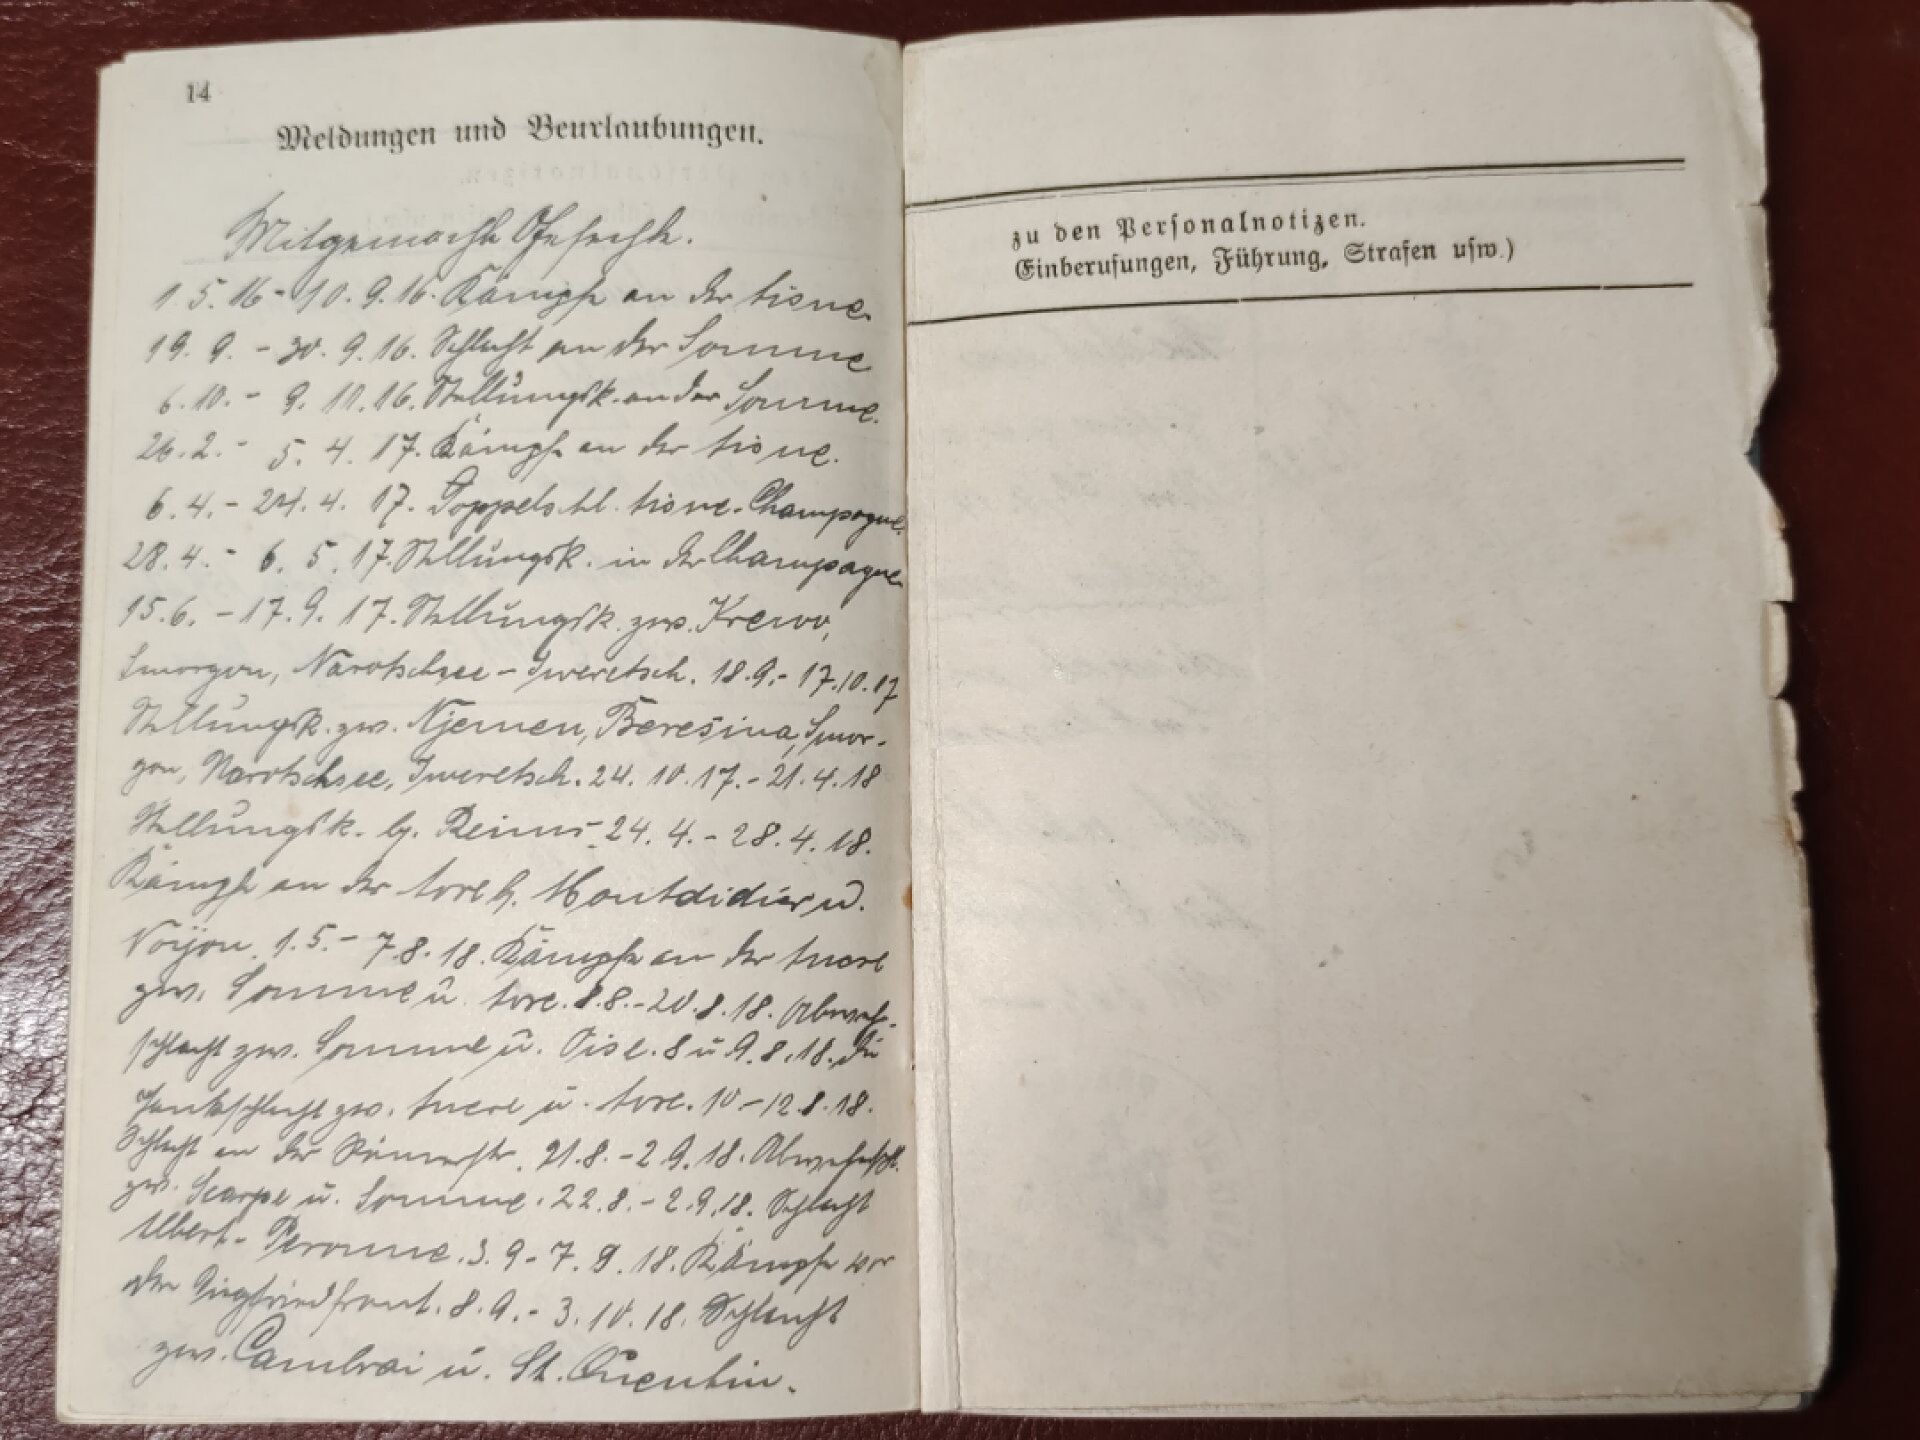 14
Meldungen und Beurlaubungen.
Mitgemachte Gefechte.
1.5.16 - 10.9.16. Kämpfe an der Aisne
19.9. - 30.9.16. Schlacht an der Somme
6.10. - 9.11.16. Stellungsk. an der Somme.
26.2. - 5.4.17. Kämpfe an der Aisne.
6.4. - 24.4.17. Doppelschl. Aisne-Champagne.
28.4. - 6.5.17. Stellungsk. in der Champagne
15.6. - 17.9.17. Stellungsk. zws. Krewo,
Smorgon, Narotschsee - Tweretsch. 18.9. - 17.10.17
Stellungsk. zw. Njemen, Beresina, Smor-
gon, Narotschsee, Tweretsch. 24.10.17. - 21.4.18
Stellungsk. b. Reims 24.4. - 28.4.18.
Kämpfe an der Avre b. Montdidier u.
Noyon. 1.5. - 7.8.18. Kämpfe an der Ancre
zws. Somme u. Avre. 8.8. - 20.8.18. Abwehr-
schlacht zw. Somme u. Oise. 8 u 9.8.18. Die
Tankschlacht zw. Ancre u. Avre. 10 - 12.8.18.
Schlacht an der Römerstr. 21.8. - 2.9.18. Abwehrschl.
zw. Scarpe u. Somme. 22.8. - 2.9.18. Schlacht
Albert - Peronne. 3.9 - 7.9.18. Kämpfe vor
der Siegfriedfront. 8.9. - 3.10.18. Schlacht
zw. Cambrai u. St. Quentin.
zu den Personalnotizen.
Einberufungen, Führung, Strafen usw.)